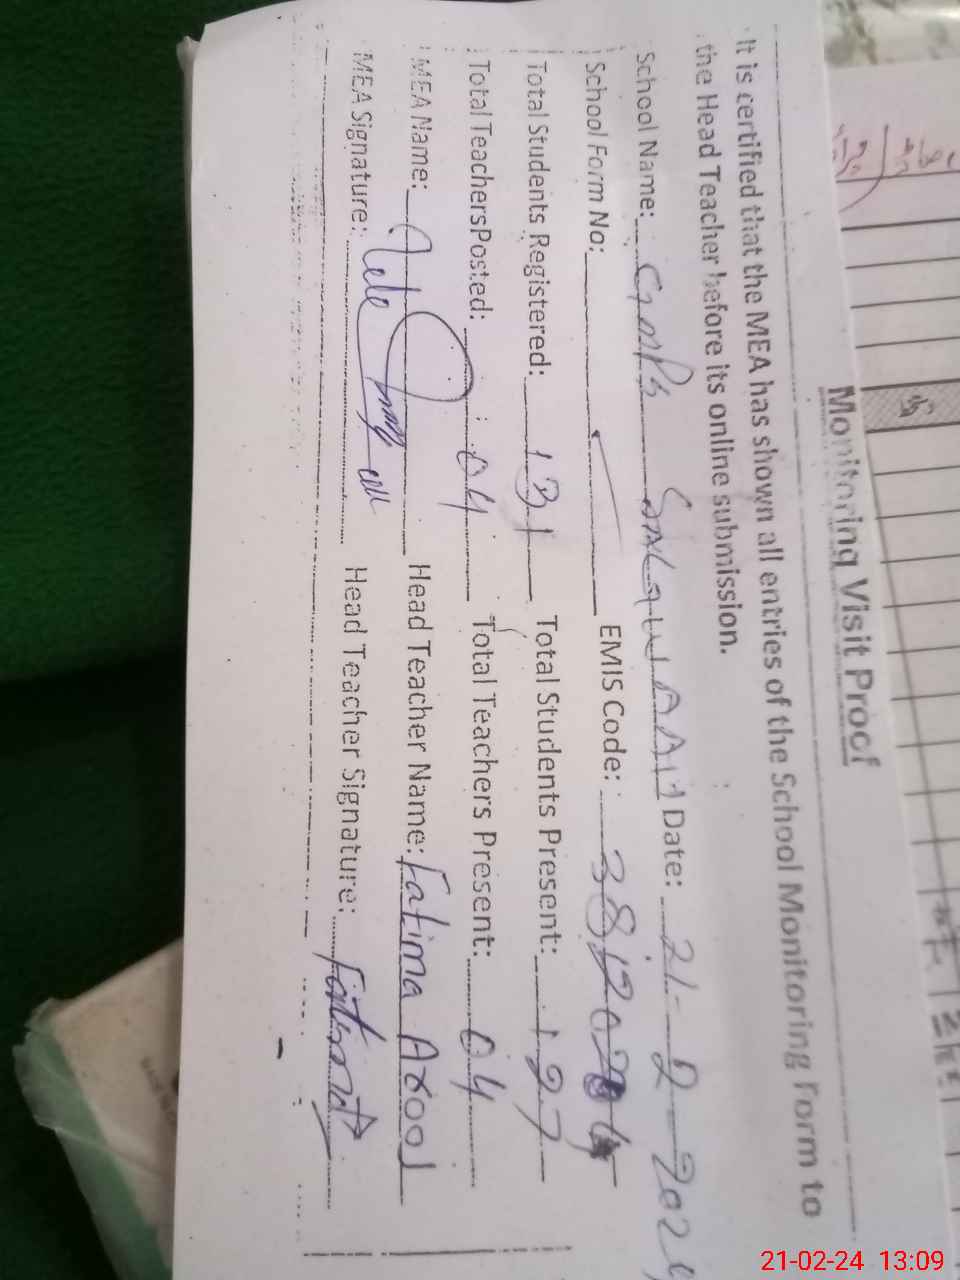 Monitoring Visit Proof
It is certified that the MEA has shown all entries of the School Monitoring Form to
the Head Teacher before its online submission.
School Name: GMPS Date: 21-2-2024
School Form No: EMIS Code:
Total Students Registered: 131 Total Students Present: 127
Total TeachersPosted: 04 Total Teachers Present: 04
MEA Name: Head Teacher Name: Fatima
MEA Signature: Head Teacher Signature: Fatima
21-02-24 13:09